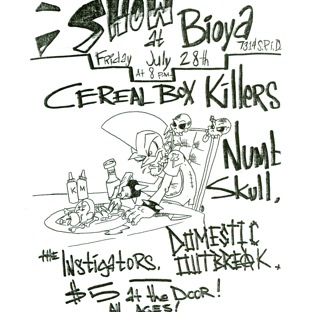 SHOW
at
Bioya
Friday July 28th
At 8 P.M.
CEREAL BOX KIllERS
Numb
Skull.
K M
the INStIGATORS.
DOMESTIC
OUTBREAK.
$5 at the DOOR!
All AGES!